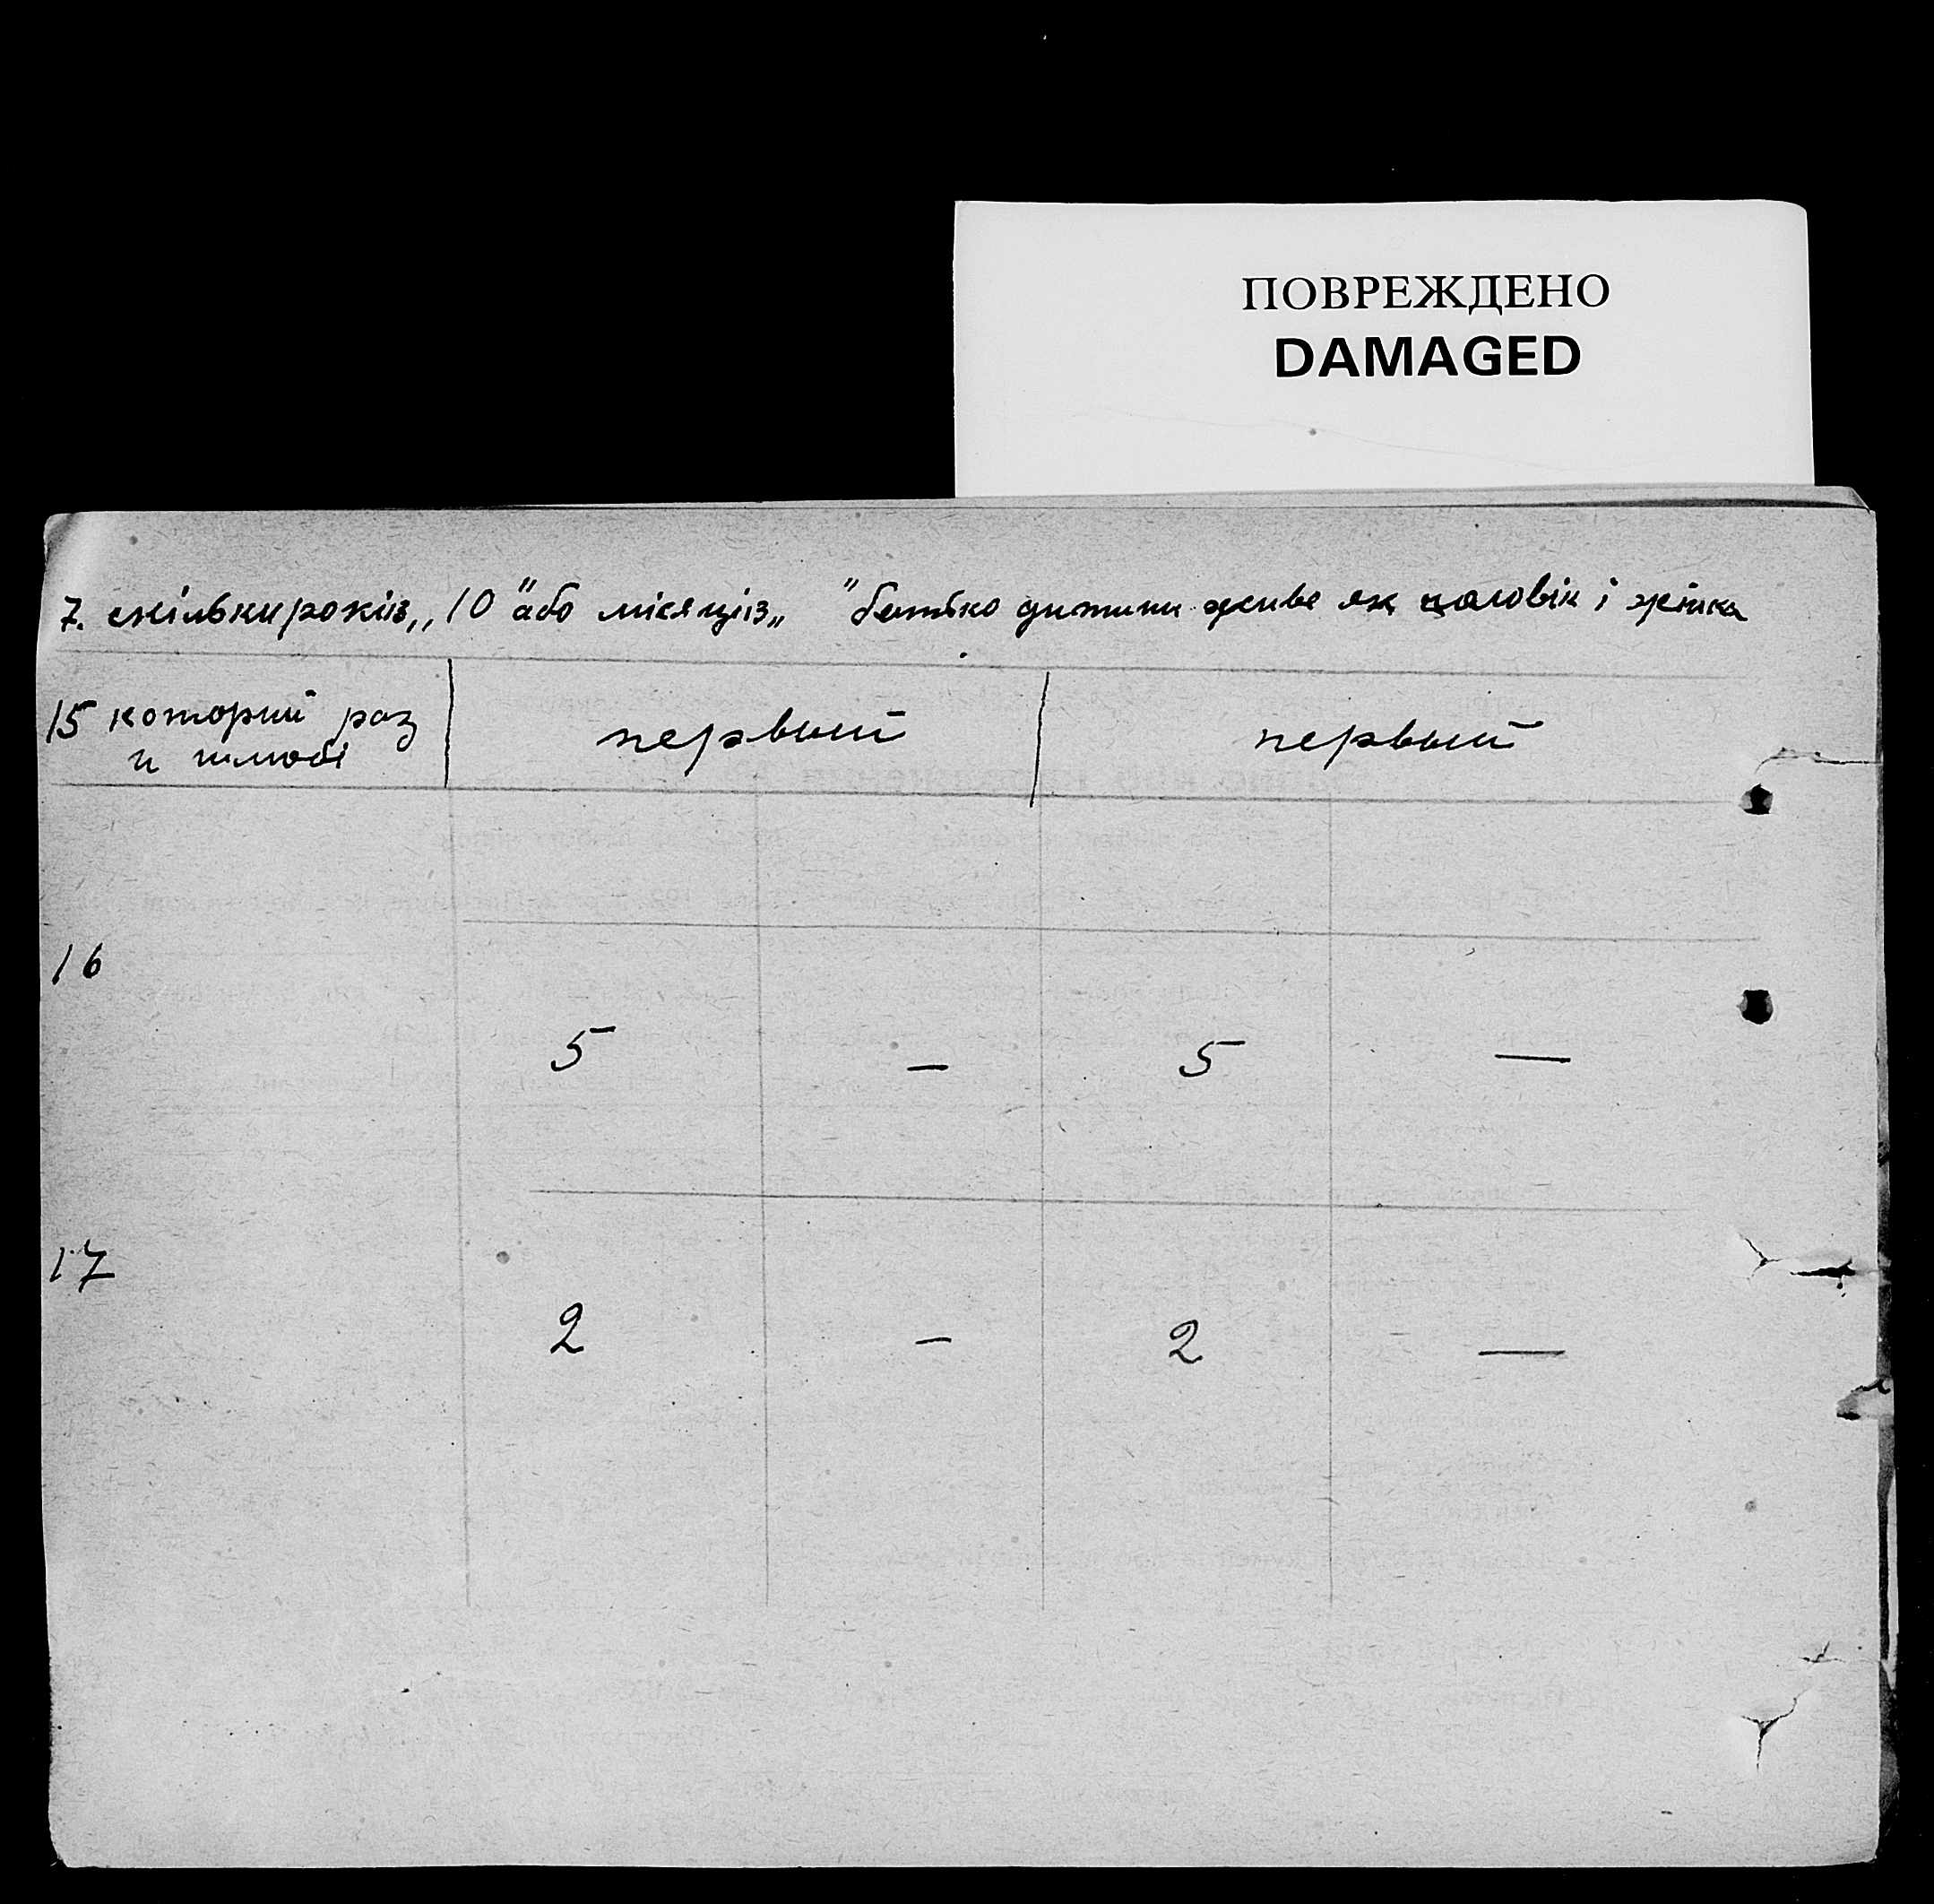 ПОВРЕЖДЕНО
DAMAGED
7. скільки років „ 10 " або місяців „ " батько дитини живе як чоловік і жінка
15 которий раз первый первый
и шлюбі
16
5 — 5 —
17
2 — 2 —